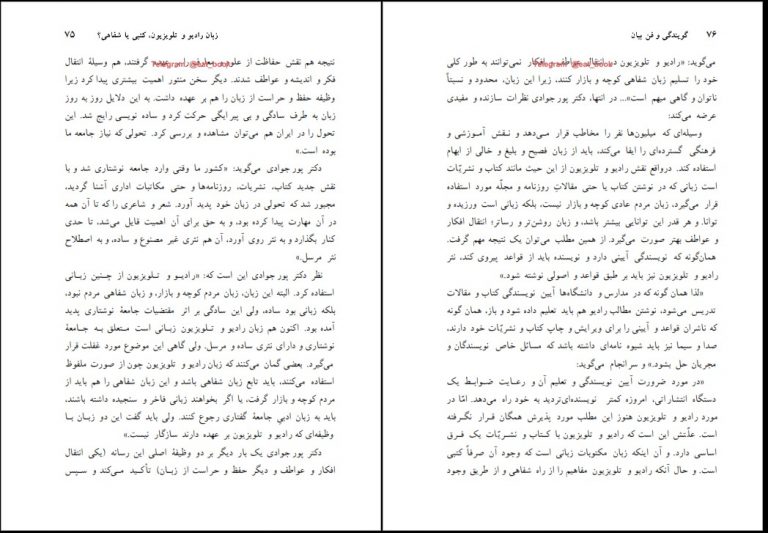 زبان رادیو و تلویزیون، کتبی یا شفاهی؟ ۷۵
نتیجه هم نقش حفاظت از علوم و معارف را به عهده گرفتند، هم وسیلهٔ انتقال
Telegram: @eat_book
فکر و اندیشه و عواطف شدند. دیگر سخن منثور اهمیت بیشتری پیدا کرد زیرا
وظیفه حفظ و حراست از زبان را هم بر عهده داشت. به این دلایل روز به روز
زبان به طرف سادگی و بی پیرایگی حرکت کرد و ساده نویسی رایج شد. این
تحول را در ایران هم می‌توان مشاهده و بررسی کرد. تحولی که نیاز جامعه ما
بوده است.»
دکتر پورجوادی می‌گوید: «کشور ما وقتی وارد جامعه نوشتاری شد و با
نقش جدید کتاب، نشریات، روزنامه‌ها و حتی مکاتبات اداری آشنا گردید،
مجبور شد که تحولی در زبان خود پدید آورد. شعر و شاعری را که تا آن همه
در آن مهارت پیدا کرده بود، و به حق برای آن اهمیت قایل می‌شد، تا حدی
کنار بگذارد و به نثر روی آورد، آن هم نثری غیر مصنوع و ساده، و به اصطلاح
نثر مرسل.»
نظر دکتر پورجوادی این است که: «رادیـو و تـلویزیون از چـنین زبـانی
استفاده کرد. البته این زبان، زبان مردم کوچه و بازار، و زبان شفاهی مردم نبود،
بلکه زبانی بود ساده، ولی این سادگی بر اثر مقتضیات جامعهٔ نوشتاری پدید
آمده بود. اکنون هم زبان رادیو و تـلویزیون زبـانی است مـتعلق بـه جـامعهٔ
نوشتاری و دارای نثری ساده و مرسل. ولی گاهی این موضوع مورد غفلت قرار
می‌گیرد. بعضی گمان می‌کنند که زبان رادیو و تلویزیون چون از صورت ملفوظ
استفاده می‌کنند، باید تابع زبان شفاهی باشد و این زبان شفاهی را هم باید از
مردم کوچه و بازار گرفت، یا اگر بخواهند زبانی فاخر و سنجیده داشته باشند،
باید به زبان ادبیِ جامعهٔ گفتاری رجوع کنند. ولی باید گفت این دو زبـان بـا
وظیفه‌ای که رادیو و تلویزیون بر عهده دارند سازگار نیست.»
دکتر پورجوادی یک بار دیگر بر دو وظیفهٔ اصلی این رسانه (یکی انتقال
افکار و عواطف و دیگر حفظ و حراست از زبـان) تأکـید مـی‌کند و سـپس
۷۶ گویندگی و فن بیان
می‌گوید: «رادیو و تلویزیون در انتقال عواطف و افکار نمی‌توانند به طور کلی
Telegram: @eat_book
خود را تسلیم زبان شفاهی کوچه و بازار کنند، زیرا این زبان، محدود و نسبتاً
ناتوان و گاهی مبهم است»... در انتها، دکتر پورجوادی نظرات سازنده و مفیدی
عرضه می‌کند:
وسیله‌ای که میلیون‌ها نفر را مخاطب قرار مـی‌دهد و نـقش آمـوزشی و
فرهنگی گسترده‌ای را ایفا می‌کند، باید از زبان فصیح و بلیغ و خالی از ابهام
استفاده کند. درواقع نقش رادیو و تلویزیون از این حیث مانند کتاب و نشریّات
است زبانی که در نوشتن کتاب یا حتی مقالاتِ روزنامه و مجلّه مورد استفاده
قرار می‌گیرد، زبان مردم عادی کوچه و بازار نیست، بلکه زبانی است ورزیده و
توانا. و هر قدر این توانایی بیشتر باشد، و زبان روشن‌تر و رساتر؛ انتقال افکار
و عواطف بهتر صورت می‌گیرد. از همین مطلب می‌توان یک نتیجه مهم گرفت.
همان‌گونه که نویسندگی آیینی دارد و نویسنده باید از قواعد پیروی کند، نثر
رادیو و تلویزیون نیز باید بر طبق قواعد و اصولی نوشته شود.»
«لذا همان گونه که در مدارس و دانشگاه‌ها آیین نویسندگی کتاب و مقالات
تدریس می‌شود، نوشتن مطالب رادیو هم باید تعلیم داده شود و باز، همان گونه
که ناشران قواعد و آیینی را برای ویرایش و چاپ کتاب و نشریّات خود دارند،
صدا و سیما نیز باید شیوه نامه‌ای داشته باشد که مسائل خاص نویسندگان و
مجریان حل بشود.» و سرانجام می‌گوید:
«در مورد ضرورت آیین نویسندگی و تعلیم آن و رعـایت ضـوابـط یک
دستگاه انتشاراتی، امروزه کمتر نویسنده‌ای تردید به خود راه می‌دهد. امّا در
مورد رادیو و تلویزیون هنوز این مطلب مورد پذیرش همگان قـرار نگـرفته
است. علّتش این است که رادیو و تلویزیون با کـتاب و نشـریّات یک فـرق
اساسی دارد. و آن اینکه زبان مکتوبات زبانی است که وجود آن صرفاً کتبی
است. و حال آنکه رادیو و تلویزیون مفاهیم را از راه شفاهی و از طریق وجود